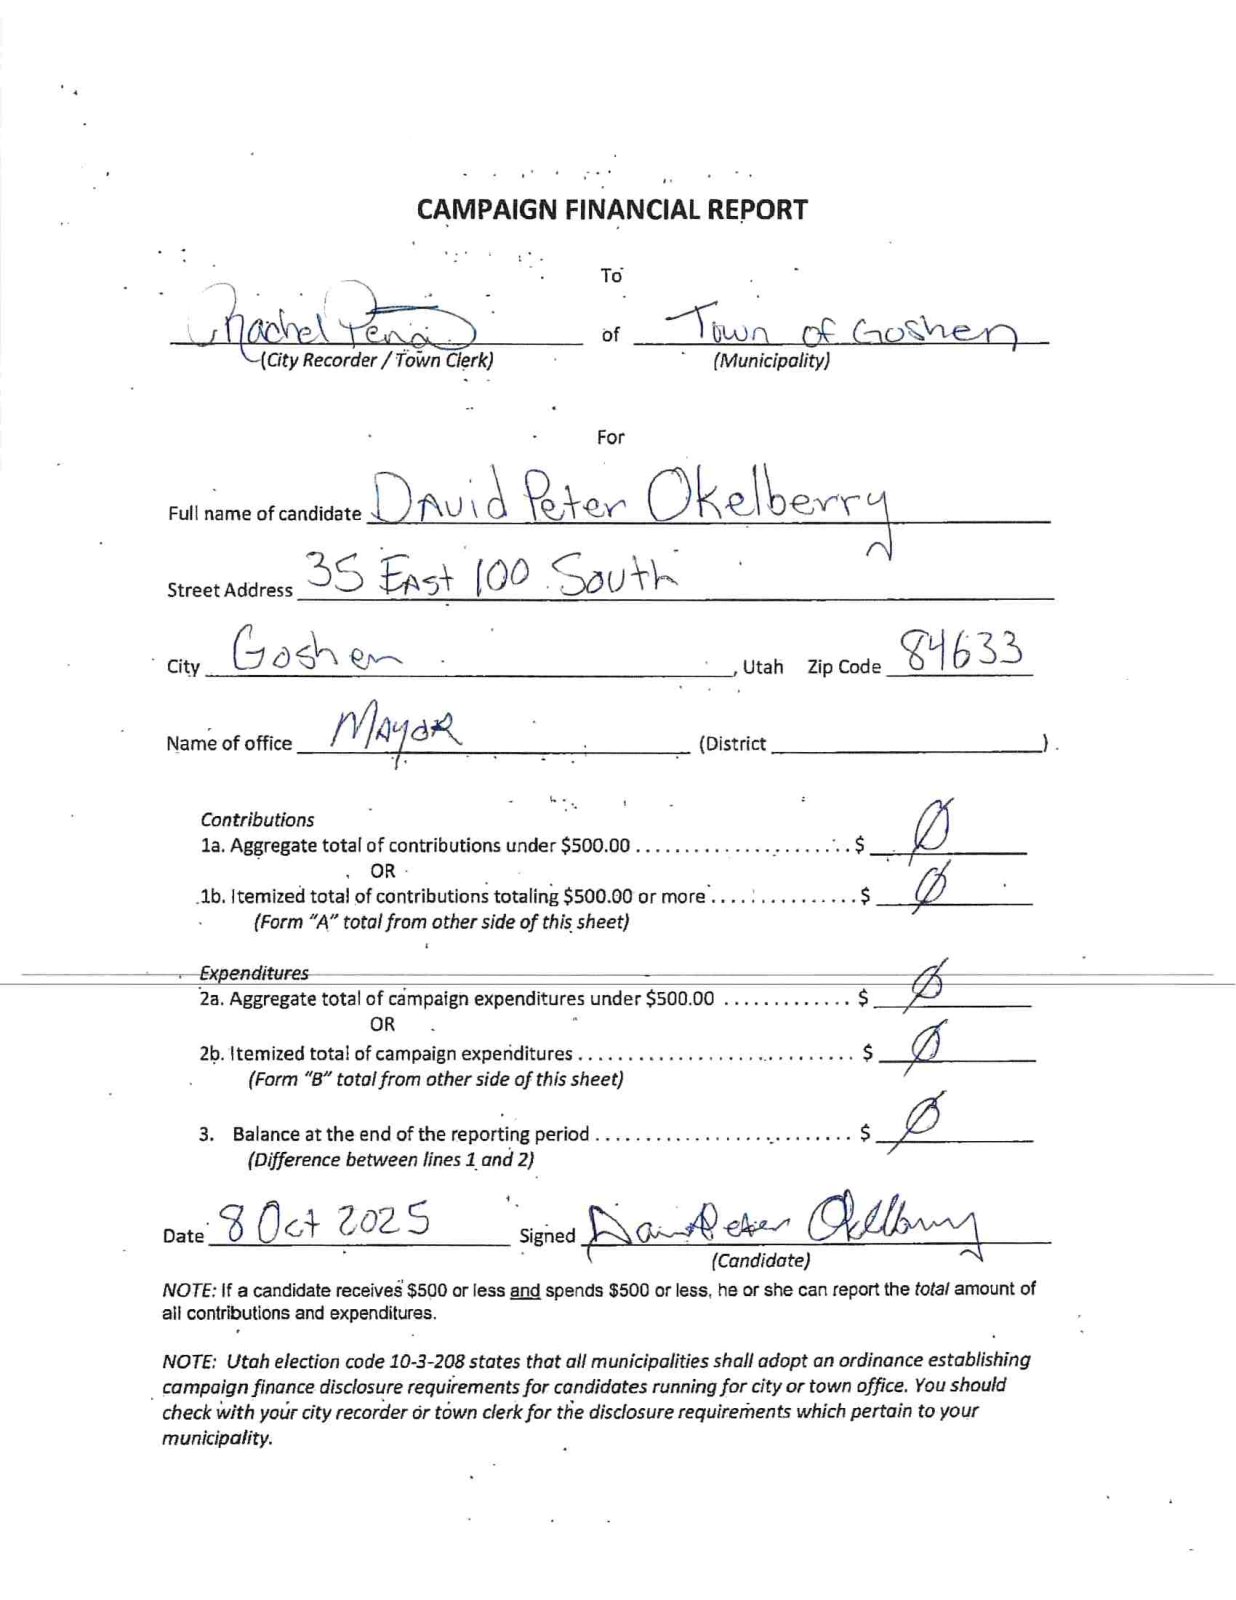 CAMPAIGN FINANCIAL REPORT
To
Rachel Pena of Town of Goshen
(City Recorder / Town Clerk) (Municipality)
For
Full name of candidate DAvid Peter Okelberry
Street Address 35 EAst 100 South
City Goshen , Utah Zip Code 84633
Name of office MAyoR (District )
Contributions
1a. Aggregate total of contributions under $500.00 ..................... $ Ø
OR
1b. Itemized total of contributions totaling $500.00 or more ................ $ Ø
(Form "A" total from other side of this sheet)
Expenditures
2a. Aggregate total of campaign expenditures under $500.00 ............. $ Ø
OR
2b. Itemized total of campaign expenditures ............................ $ Ø
(Form "B" total from other side of this sheet)
3. Balance at the end of the reporting period .......................... $ Ø
(Difference between lines 1 and 2)
Date 8 Oct 2025 Signed David Peter Okelberry
(Candidate)
NOTE: If a candidate receives $500 or less and spends $500 or less, he or she can report the total amount of
all contributions and expenditures.
NOTE: Utah election code 10-3-208 states that all municipalities shall adopt an ordinance establishing
campaign finance disclosure requirements for candidates running for city or town office. You should
check with your city recorder or town clerk for the disclosure requirements which pertain to your
municipality.